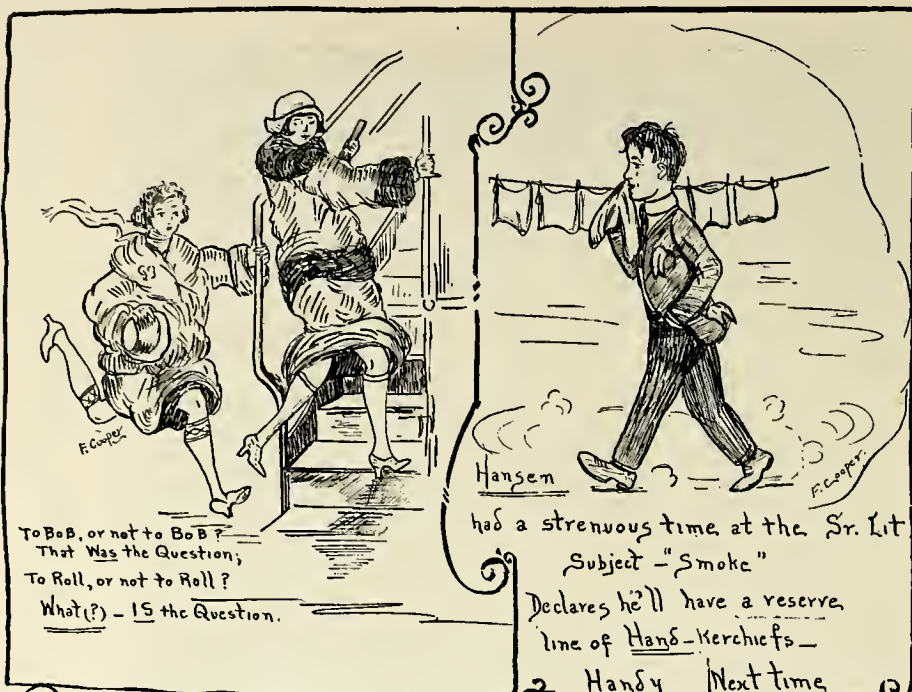 F. Cooper
To BoB, or not to BoB?
That Was the Question;
To Roll, or not to Roll?
What(?) – IS the Question.
F. Cooper.
Hansen
had a strenuous time at the Sr. Lit
Subject – "Smoke"
Declares he'll have a reserve
line of Hand-Kerchiefs –
Handy Next time